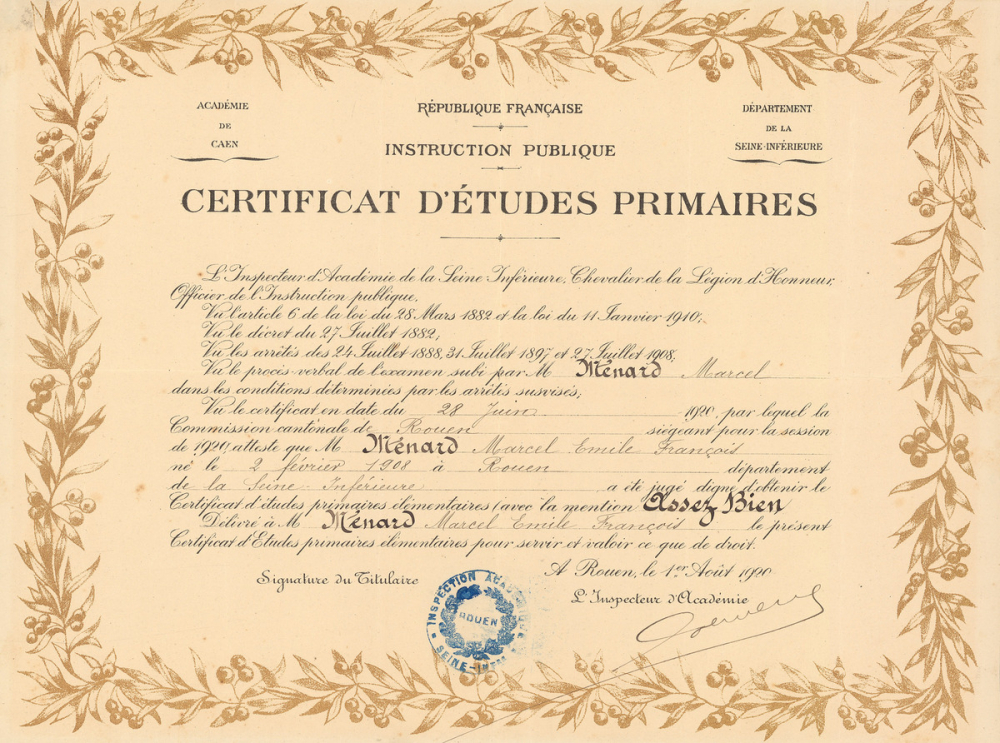 ACADÉMIE
DE
CAEN
RÉPUBLIQUE FRANÇAISE
INSTRUCTION PUBLIQUE
DÉPARTEMENT
DE LA
SEINE-INFÉRIEURE
CERTIFICAT D'ÉTUDES PRIMAIRES
L'Inspecteur d'Académie de la Seine-Inférieure, Chevalier de la Légion d'Honneur,
Officier de l'Instruction publique,
Vu l'article 6 de la loi du 28 Mars 1882 et la loi du 11 Janvier 1910;
Vu le décret du 27 Juillet 1882;
Vu les arrêtés des 24 Juillet 1888, 31 Juillet 1897, et 27 Juillet 1908;
Vu le procès-verbal de l'examen subi par M Ménard Marcel
dans les conditions déterminées par les arrêtés susvisés;
Vu le certificat en date du 28 Juin 1920, par lequel la
Commission cantonale de Rouen siégeant pour la session
de 1920, atteste que M Ménard Marcel Emile François
né le 2 février 1908 à Rouen département
de la Seine-Inférieure a été jugé digne d'obtenir le
Certificat d'études primaires élémentaires (avec la mention Assez Bien
Délivré à M Ménard Marcel Emile François le présent
Certificat d'Etudes primaires élémentaires pour servir et valoir ce que de droit.
A Rouen, le 1er Août 1920
Signature du Titulaire
L'Inspecteur d'Académie
INSPECTION ACADÉMIQUE
ROUEN
SEINE-INFRE